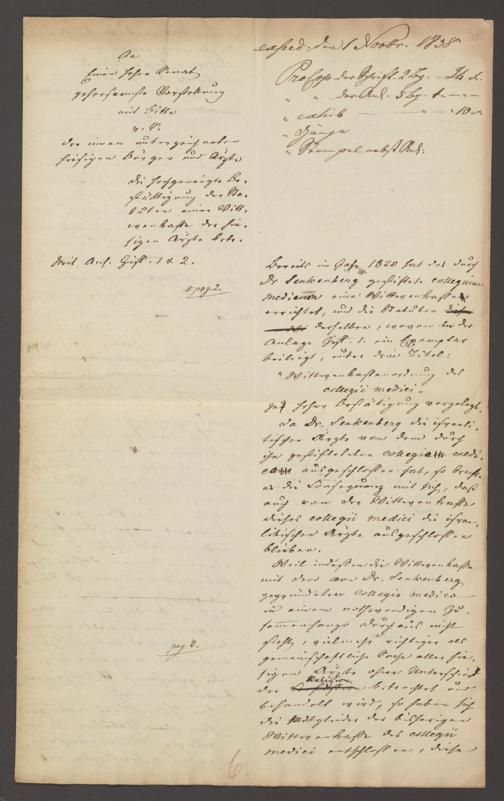 exped: den 1 Novbr. 1838
An
Einen Hohen Senat
gehorsamste Vorstellung
mit Bitte
v. S.
der innen unterzeichneten
hiesigen Bürger und Ärzte
die hochgeneigte Be-
stättigung der Sta-
tuten einer Witt-
wenkasse der hie-
sigen Ärzte betr.
Mit Anl. Ziff. 1 & 2.
pag. 2.
pag 6.
der Schrift. 2 Bg.
der Anl. 5 Bg.
" Stempel nebst Anl:
Bereits im Jahr 1820 hat das durch
Dr. Senkenberg gestiftete collegium
medicum eine Wittwenkasse
errichtet, und die Statuten
derselben, wovon in der
Anlage Ziff. 1. ein Exemplar
beiliegt, unter dem Titel:
"Wittwenkassenordnung des
collegii medici"
zur hohen Bestätigung vorgelegt.
Da Dr. Senkenberg die israeli-
tischen Ärzte von dem durch
ihn gestifteten collegium medi-
cum ausgeschlossen hat, so brachte
es die Consequenz mit sich, daß
auch von der Wittwenkasse
dieses collegii medici die israe-
litischen Ärzte ausgeschlossen
blieben.
Weil indessen die Wittwenkasse
mit dem von Dr. Senkenberg
gegründeten collegio medico
in einem nothwendigen Zu-
sammenhange durchaus nicht
steht, vielmehr richtiger als
gemeinschaftliche Sache aller hie-
sigen Ärzte ohne Unterschied
der Religion betrachtet und
behandelt wird, so haben sich
die Mitglieder der bisherigen
Wittwenkasse des collegii
medici entschlossen, diese
6